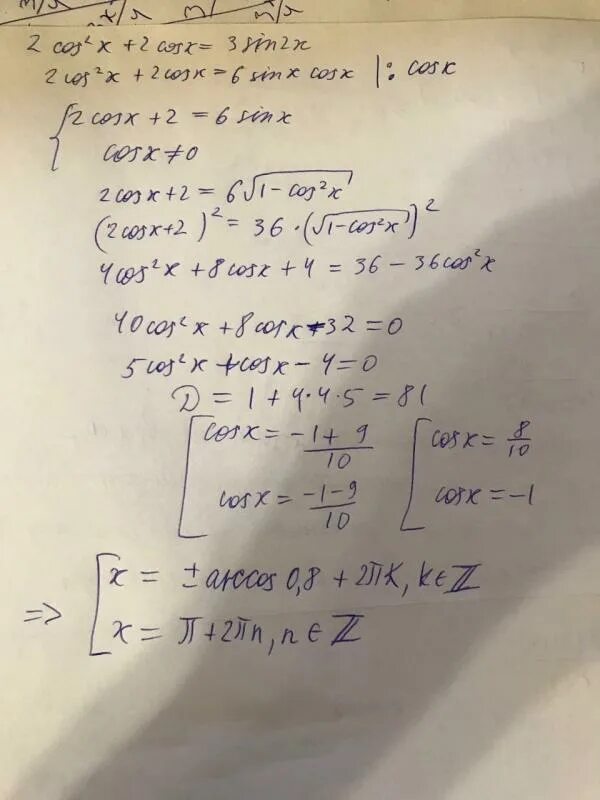 2 cos²x + 2 cosx = 3 sin2x
2 cos²x + 2cosx = 6 sinx cosx | : cosx
{ 2cosx + 2 = 6 sinx
cosx ≠ 0
2cosx + 2 = 6√1-cos²x
(2cosx+2)² = 36 · (√1-cos²x)²
4cos²x + 8cosx + 4 = 36 - 36cos²x
40cos²x + 8cosx - 32 = 0
5cos²x + cosx - 4 = 0
D = 1 + 4·4·5 = 81
[ cosx = -1+9/10 [ cosx = 8/10
cosx = -1-9/10 cosx = -1
=> [ x = ± arccos 0,8 + 2πk, k ∈ ℤ
x = π + 2πn, n ∈ ℤ